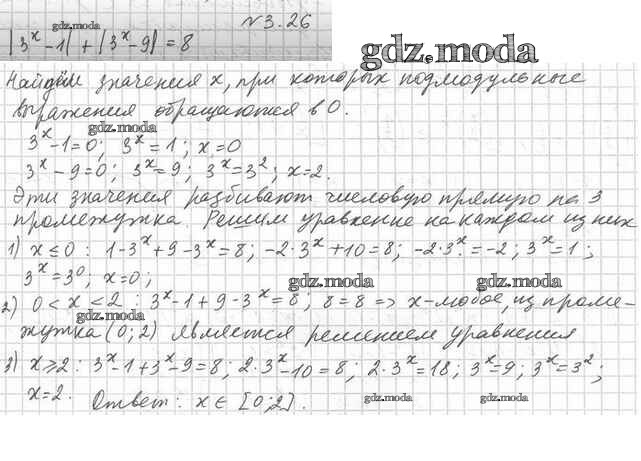 №3.26
gdz.moda
|3ˣ-1| + |3ˣ-9| = 8
gdz.moda
Найдём значения x, при которых подмодульные
выражения обращаются в 0.
gdz.moda
3ˣ-1=0; 3ˣ=1; x=0
3ˣ-9=0; 3ˣ=9; 3ˣ=3²; x=2.
Эти значения разбивают числовую прямую на 3
промежутка. Решим уравнение на каждом из них
1) x≤0 : 1-3ˣ+9-3ˣ=8; -2·3ˣ+10=8; -2·3ˣ=-2; 3ˣ=1;
3ˣ=3⁰; x=0;
gdz.moda gdz.moda
2) 0<x<2 : 3ˣ-1+9-3ˣ=8; 8=8 => x-любое, из проме-
gdz.moda
жутка (0;2) является решением уравнения
3) x≥2 : 3ˣ-1+3ˣ-9=8; 2·3ˣ-10=8; 2·3ˣ=18; 3ˣ=9; 3ˣ=3²;
x=2. Ответ: x∈[0;2].
gdz.moda gdz.moda